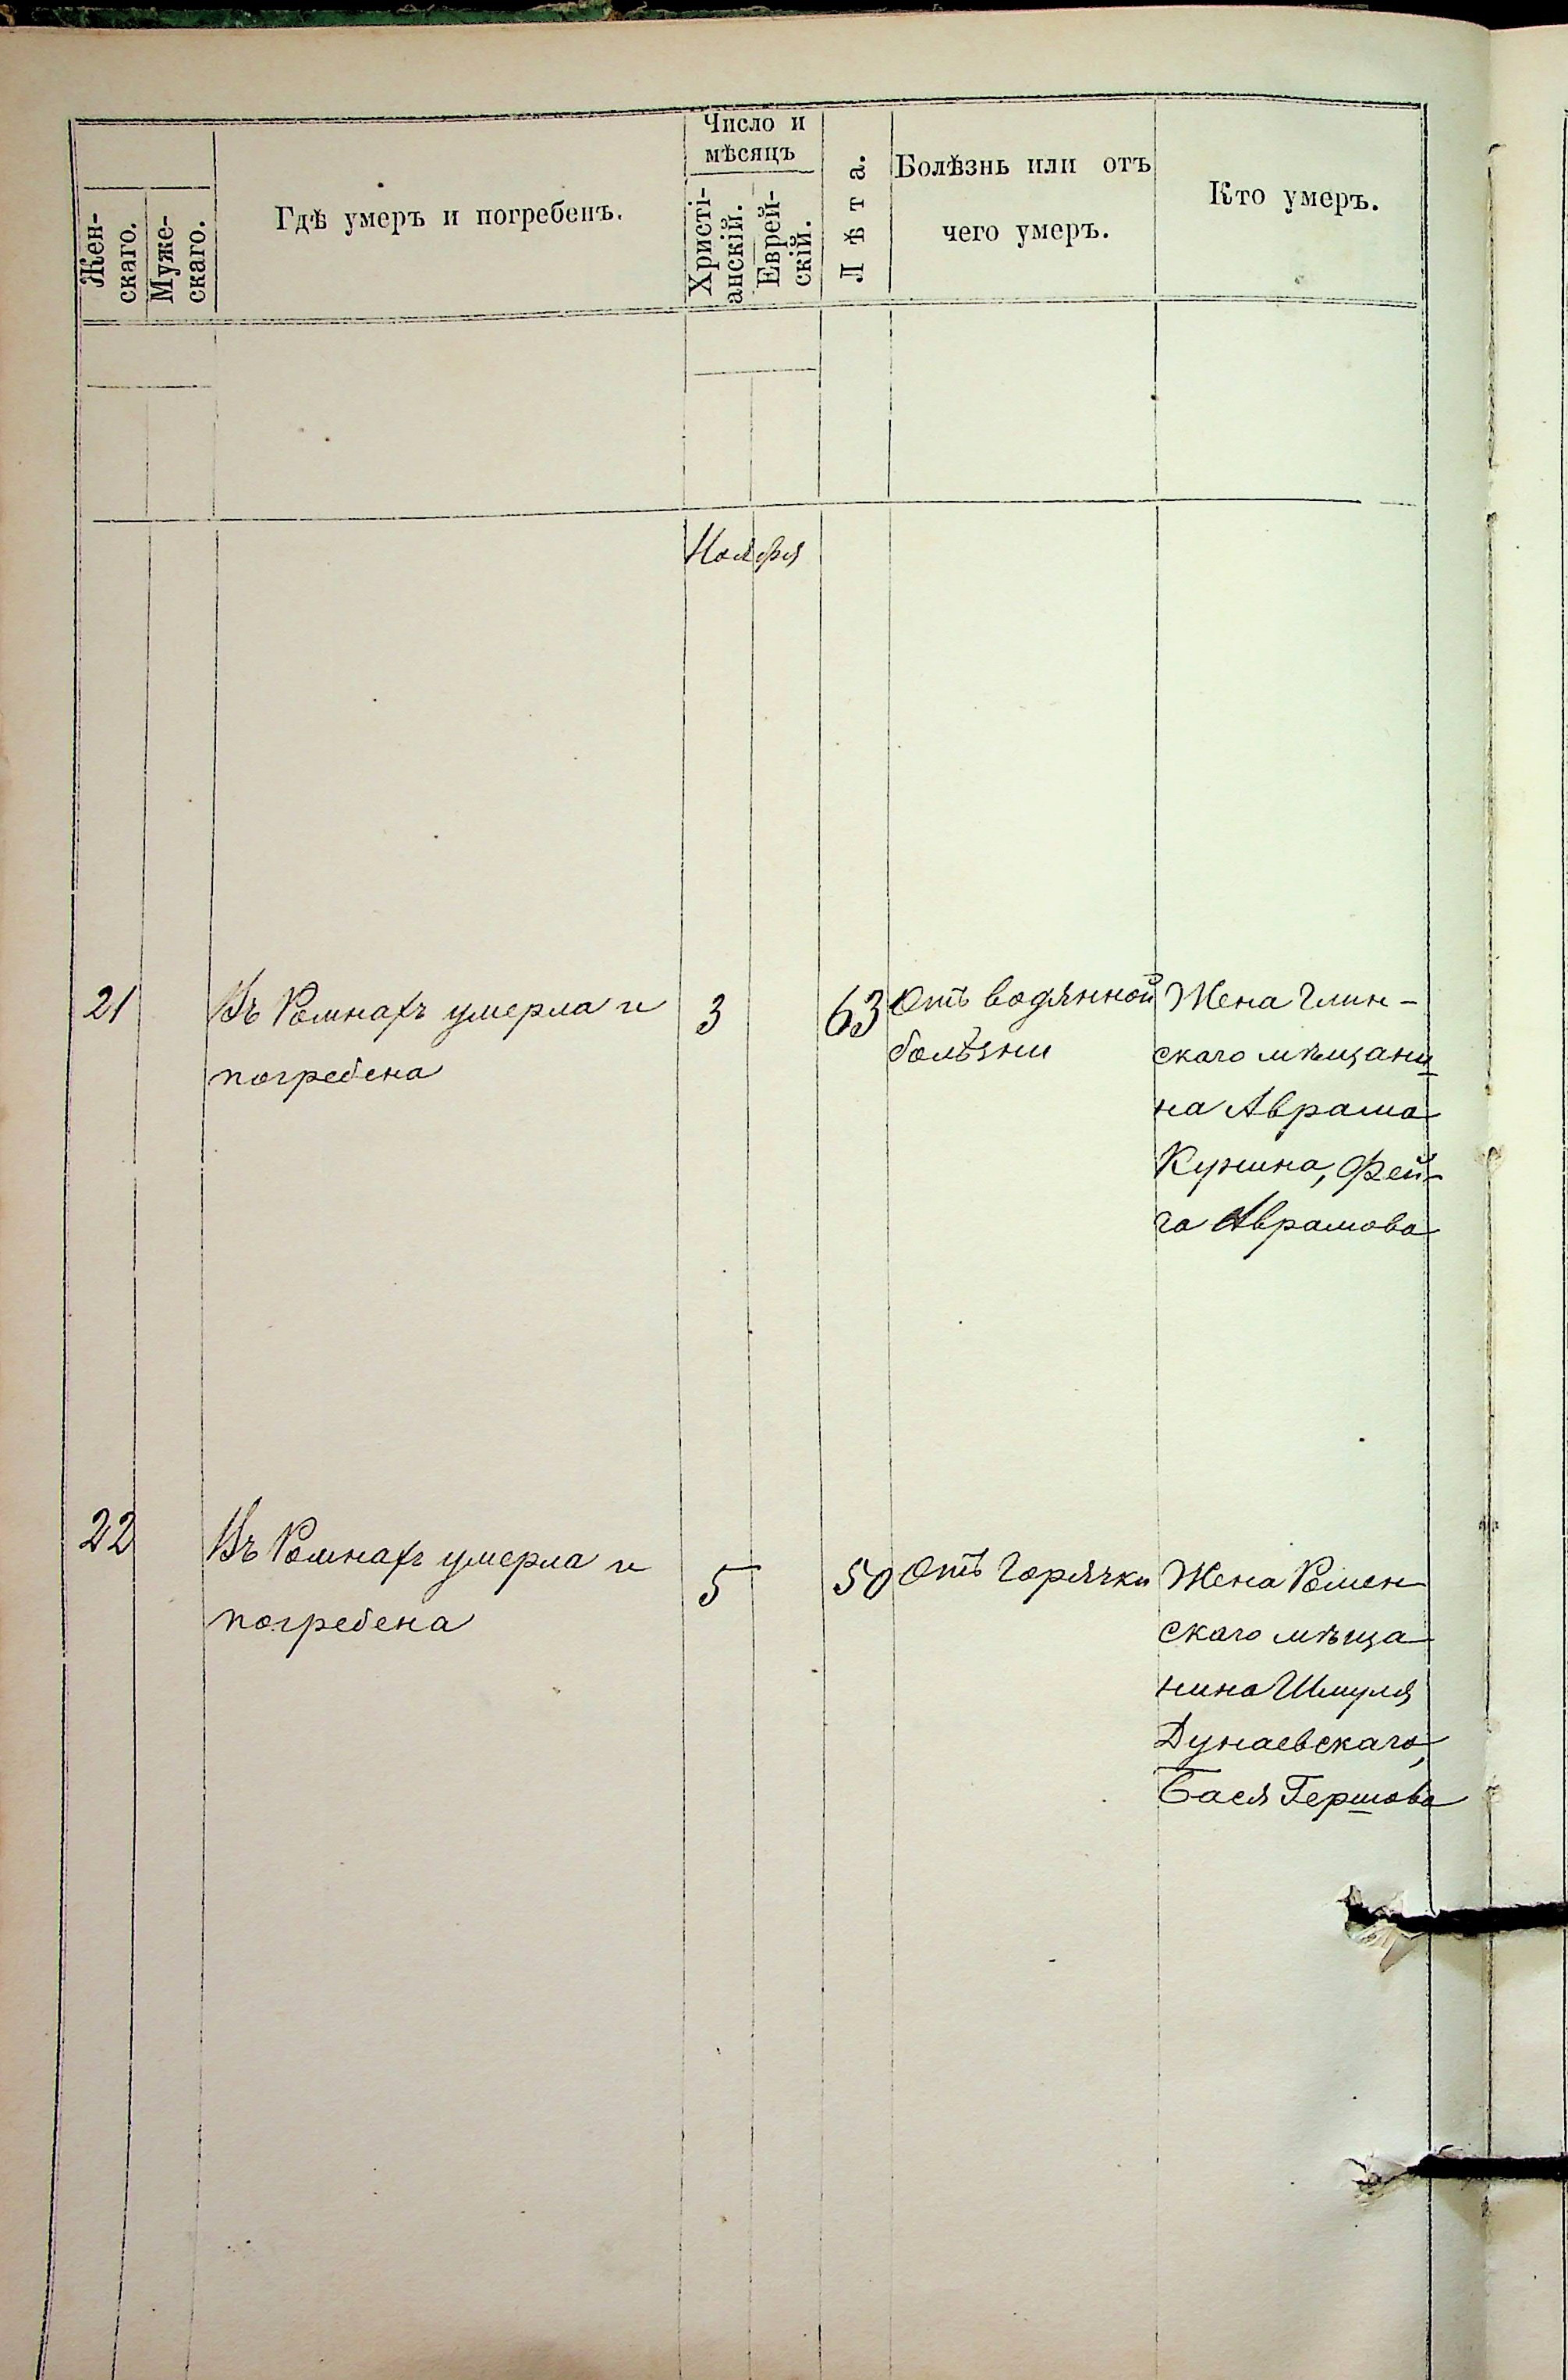 Жен-
скаго.
Муже-
скаго.
Гдѣ умеръ и погребенъ.
Число и
мѣсяцъ
Христі-
анскій.
Еврей-
скій.
Лѣта.
Болѣзнь или отъ
чего умеръ.
Кто умеръ.
Ноября
21
Въ Ромнахъ умерла и
погребена
3
63
Отъ водянной
болѣзни
Жена Глин-
скаго мѣщани
на Аврама
Кунина, Фей-
га Аврамова
22
Въ Ромнахъ умерла и
погребена
5
50
Отъ горячки
Жена Ромен
скаго мѣща
нина Шмуля
Дунаевскаго,
Бася Гершова